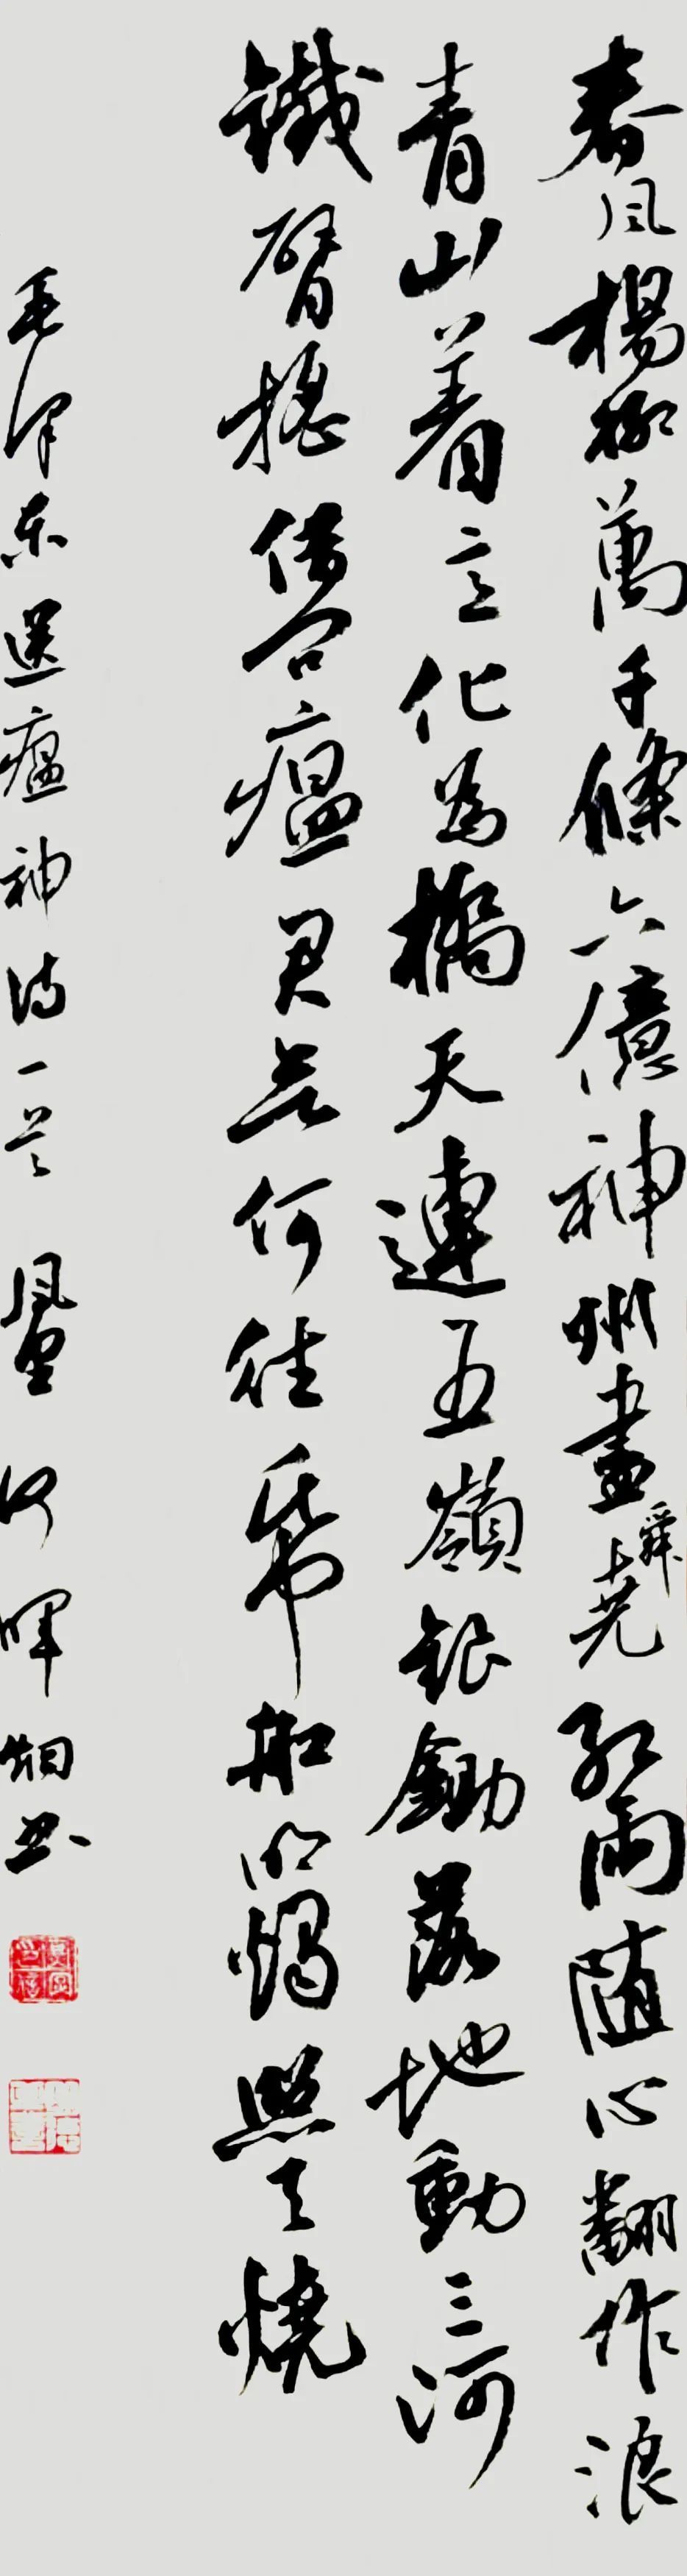 春风楊柳萬千條六億神州盡舜堯紅雨随心翻作浪
青山着意化為橋天連五嶺銀鋤落地動三河
鐵臂摇借問瘟君何往帋船明燭照天燒
毛澤東送瘟神詩一首 何暉書